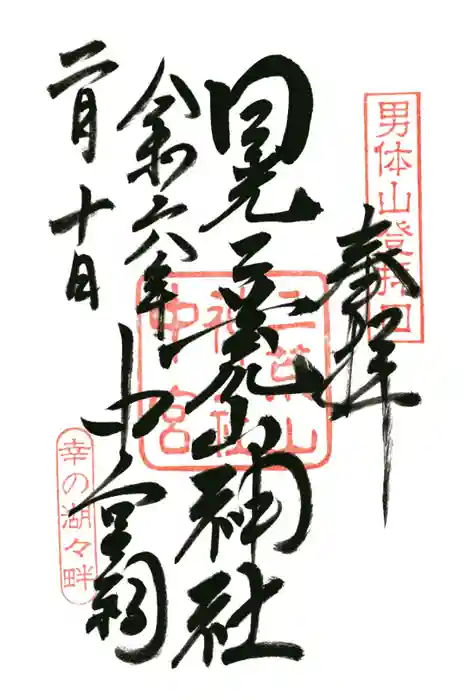 男体山登拝口
奉拝
日光二荒山神社
二荒山
神社
中宮
中宮祠
令和六年
二月十日
幸の湖々畔